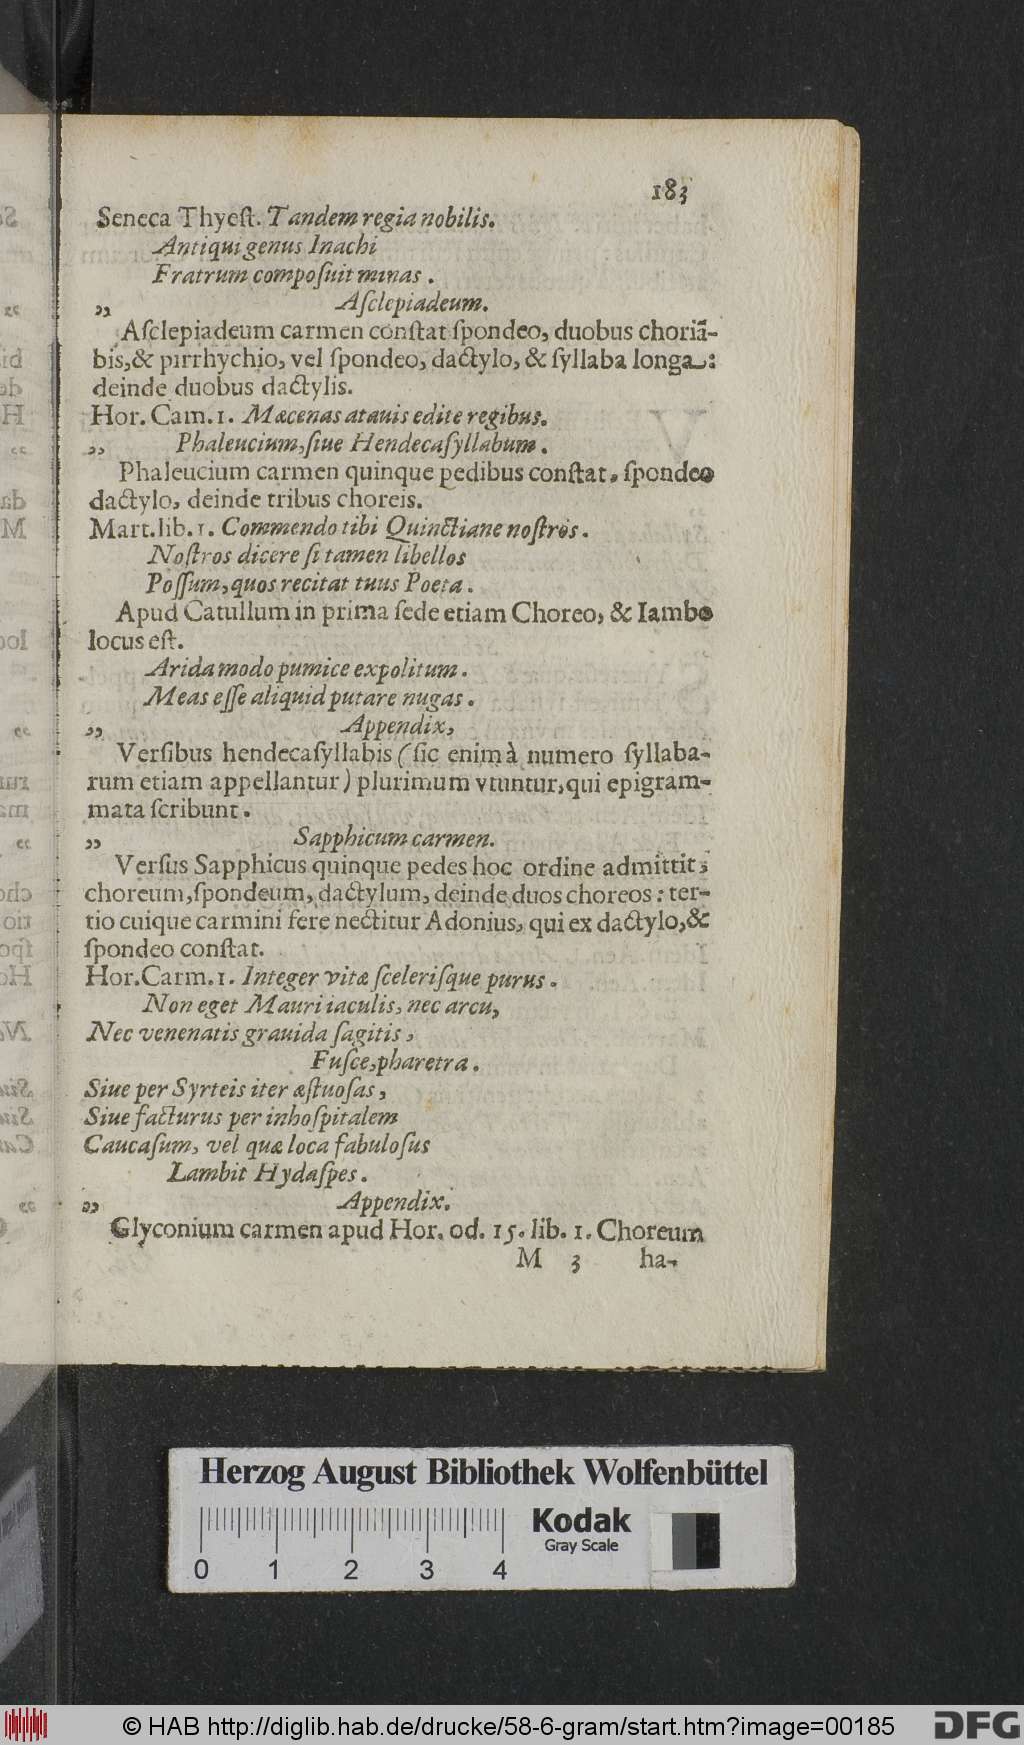 183
Seneca Thyeſt. Tandem regia nobilis.
Antiqui genus Inachi
Fratrum compoſuit minas.
„ Aſclepiadeum.
Aſclepiadeum carmen conſtat ſpondeo, duobus choriā-
bis, & pirrhychio, vel ſpondeo, dactylo, & ſyllaba longa:
deinde duobus dactylis.
Hor. Cam. 1. Mæcenas atauis edite regibus.
„ Phaleucium, ſiue Hendecaſyllabum.
Phaleucium carmen quinque pedibus conſtat, ſpondeo
dactylo, deinde tribus choreis.
Mart. lib. 1. Commendo tibi Quinctiane noſtros.
Noſtros dicere ſi tamen libellos
Poſſum, quos recitat tuus Poeta.
Apud Catullum in prima ſede etiam Choreo, & Iambo
locus eſt.
Arida modo pumice expolitum.
Meas eſſe aliquid putare nugas.
„ Appendix,
Verſibus hendecaſyllabis (ſic enim à numero ſyllaba-
rum etiam appellantur) plurimum vtuntur, qui epigram-
mata ſcribunt.
„ Sapphicum carmen.
Verſus Sapphicus quinque pedes hoc ordine admittit,
choreum, ſpondeum, dactylum, deinde duos choreos: ter-
tio cuique carmini fere nectitur Adonius, qui ex dactylo, &
ſpondeo conſtat.
Hor. Carm. 1. Integer vitæ ſceleriſque purus.
Non eget Mauri iaculis, nec arcu,
Nec venenatis grauida ſagitis,
Fuſce, pharetra.
Siue per Syrteis iter æſtuoſas,
Siue facturus per inhoſpitalem
Caucaſum, vel quæ loca fabuloſus
Lambit Hydaſpes.
„ Appendix.
Glyconium carmen apud Hor. od. 15. lib. 1. Choreum
M 3 ha-
Herzog August Bibliothek Wolfenbüttel
0 1 2 3 4
Kodak
Gray Scale
© HAB http://diglib.hab.de/drucke/58-6-gram/start.htm?image=00185
DFG